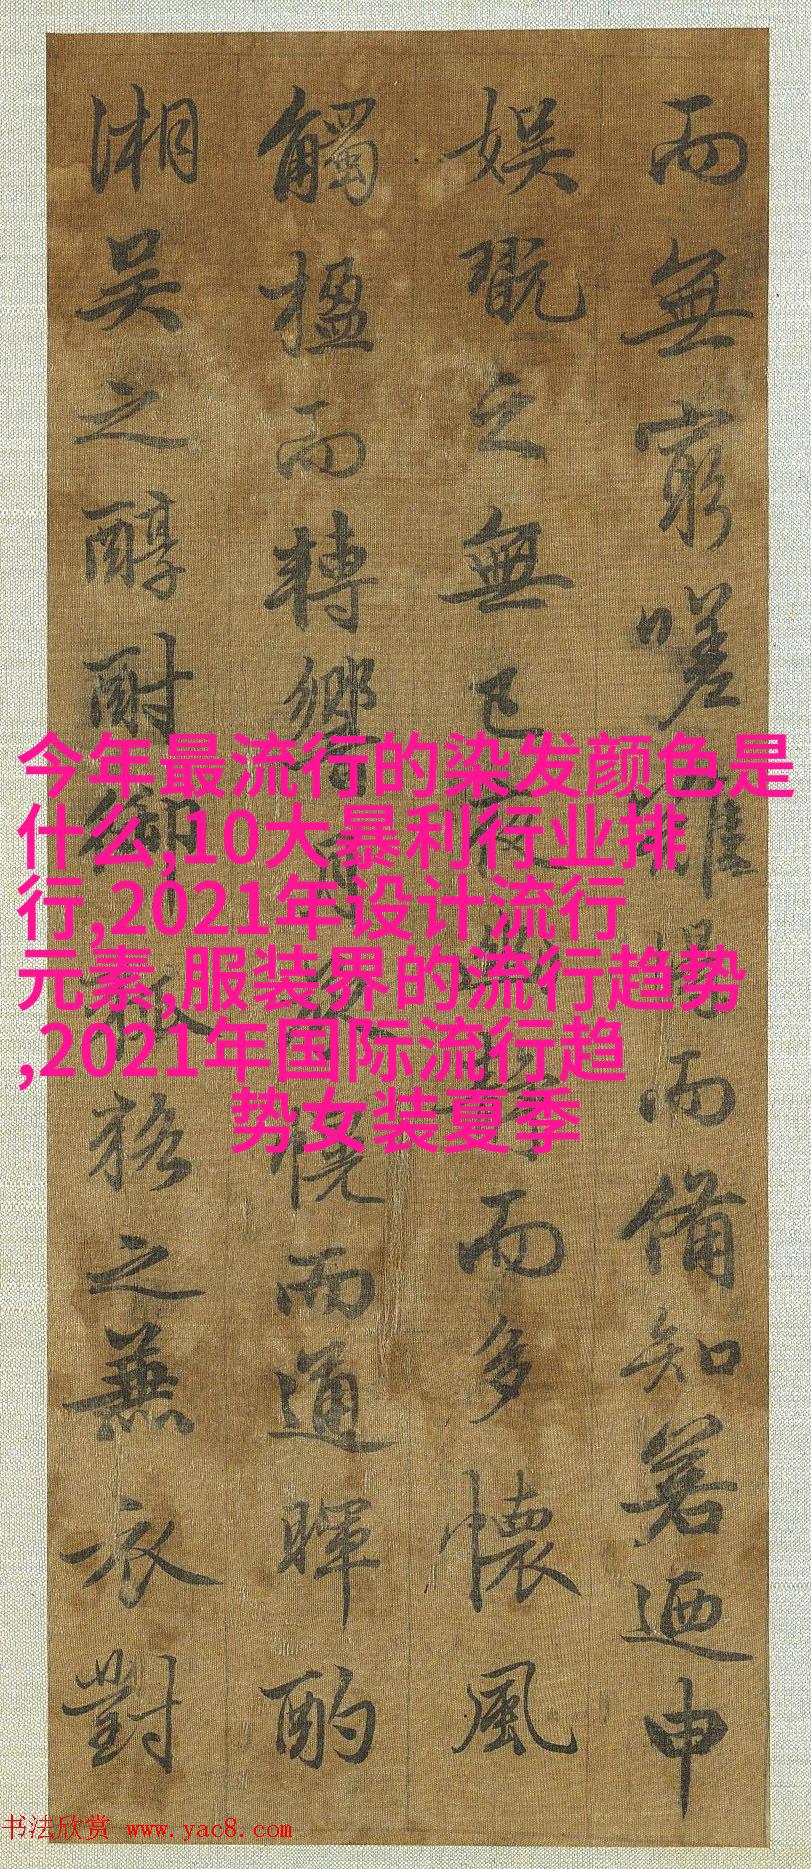 而無窮嗟誰而備知若迺申
娛翫之無已夜而多懷風
觸楹而轉響而通暉酌
湘吳之醇酎御之兼衣對
今年最流行的染发颜色是
什么,10大暴利行业排
行,2021年设计流行
元素,服装界的流行趋势
,2021年国际流行趋
势女装夏季
书法欣赏 www.yac8.com